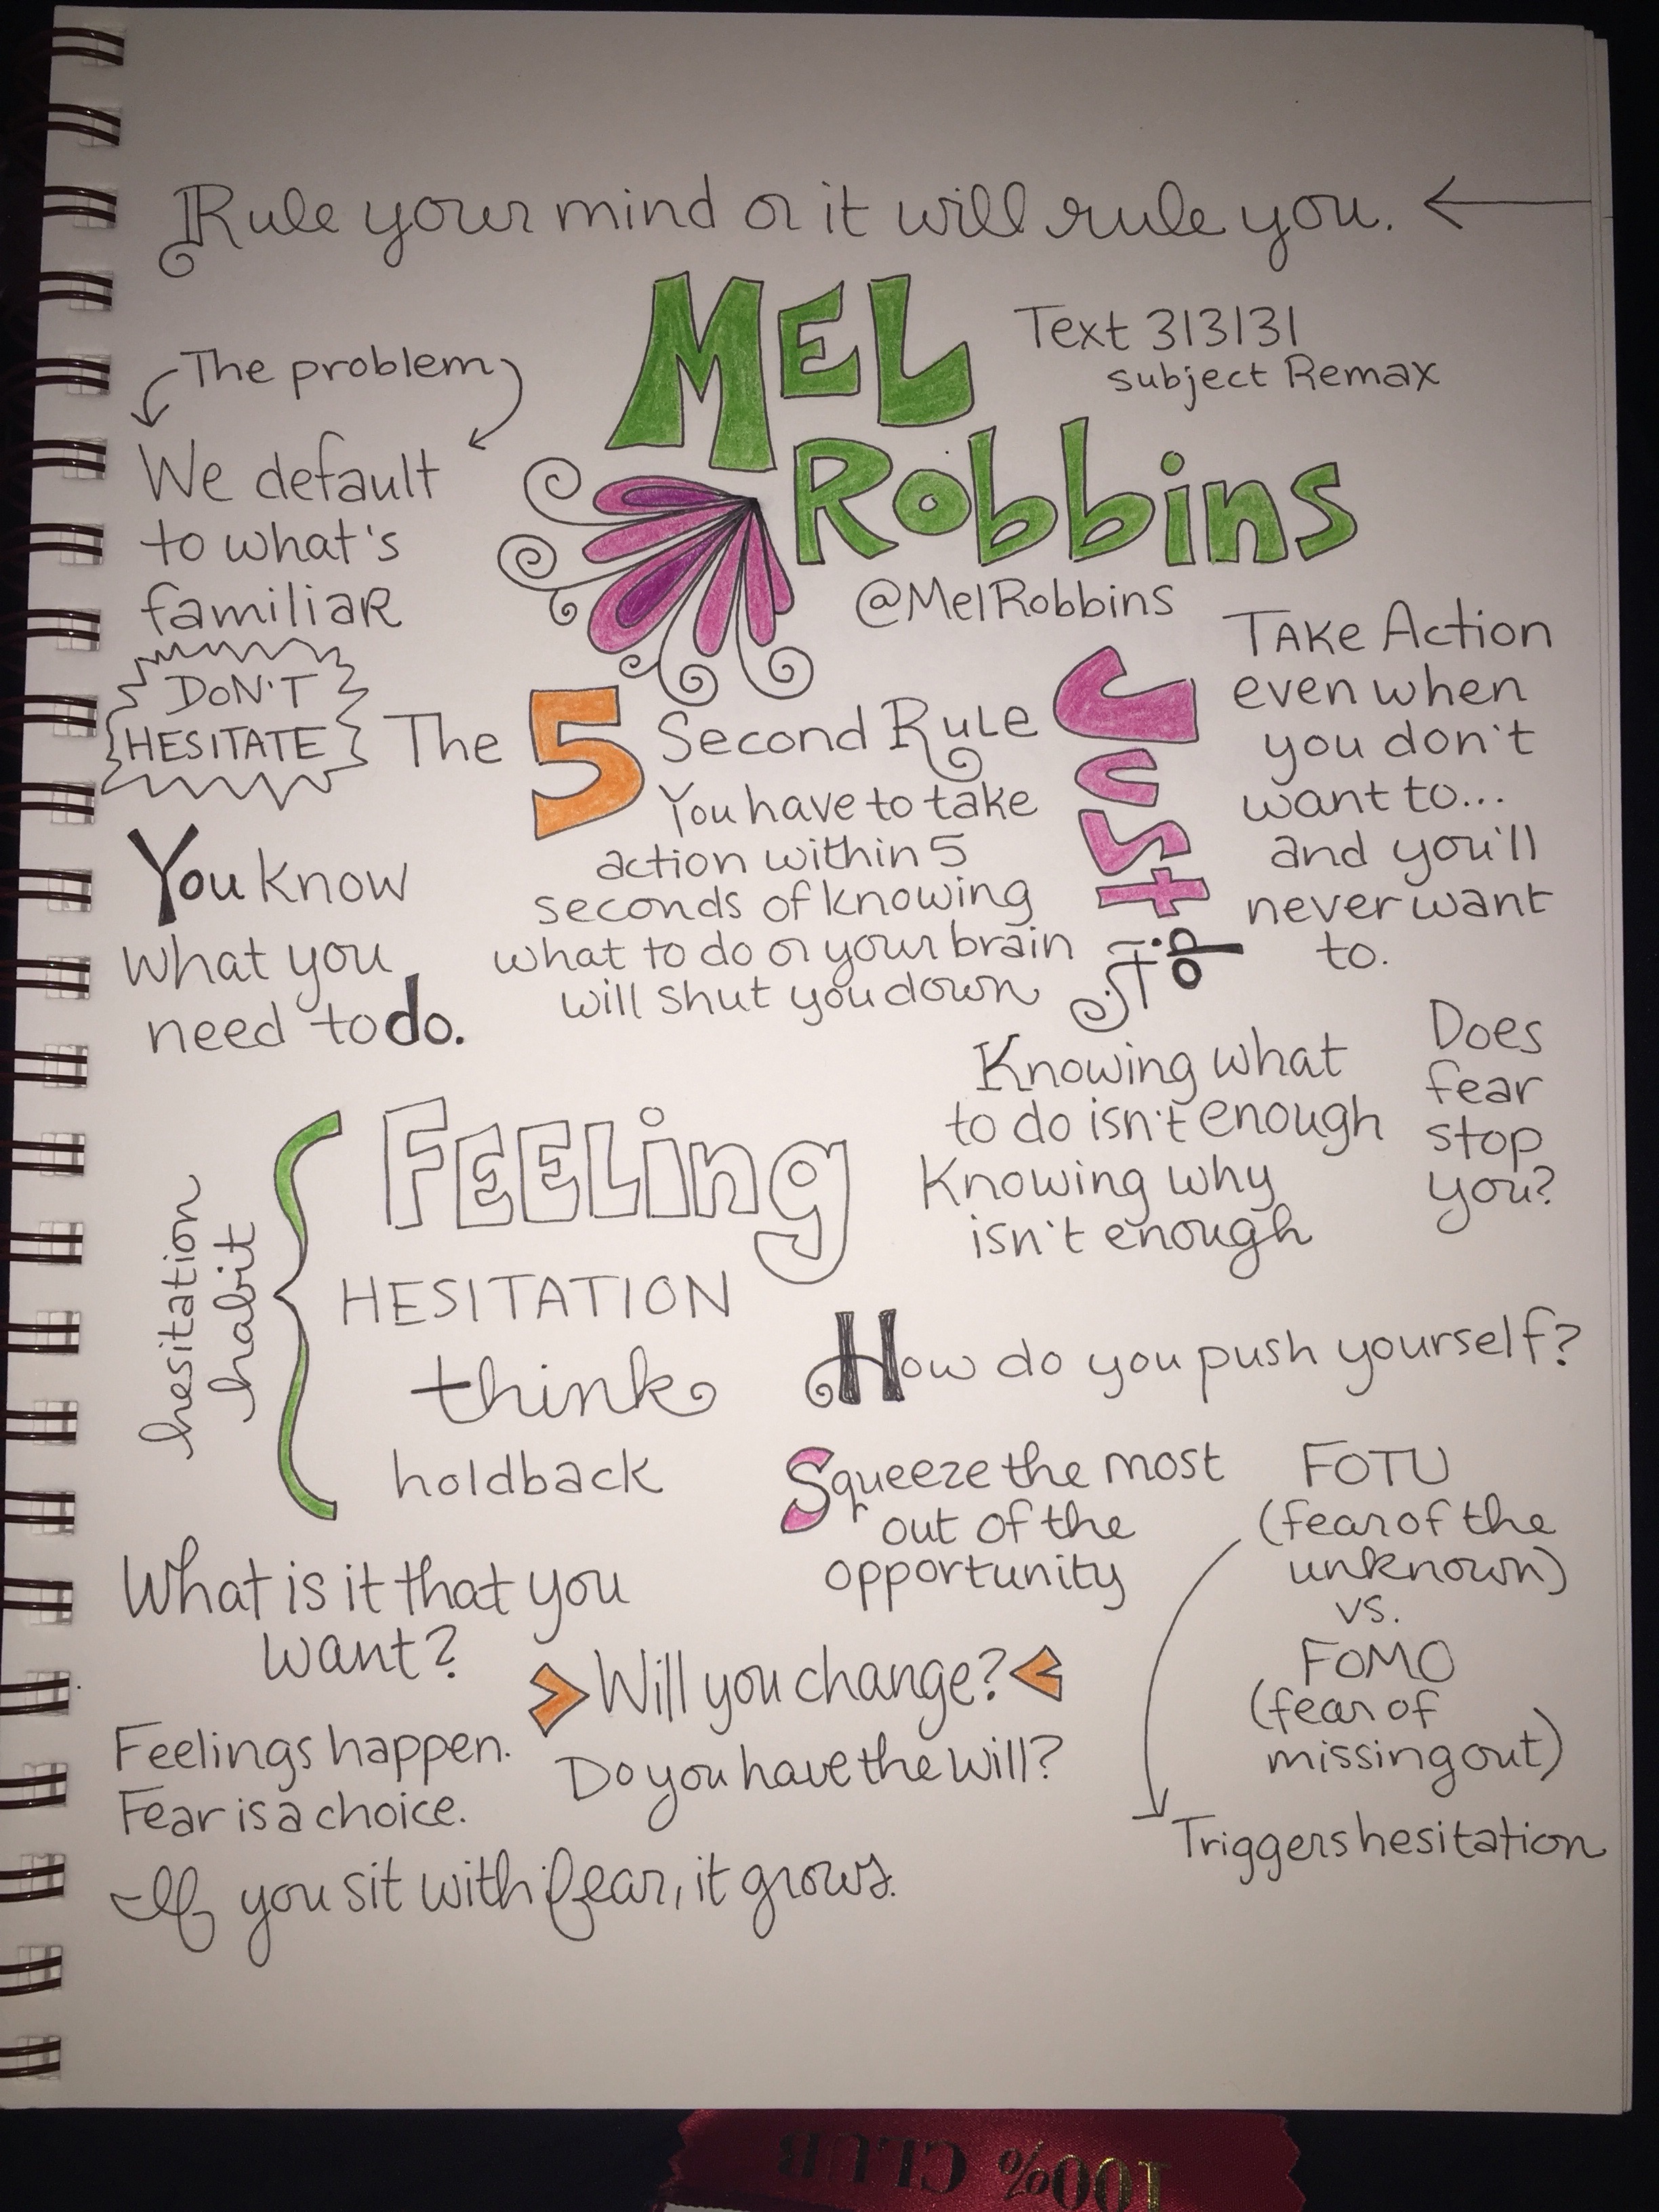 Rule your mind or it will rule you.
MEL
Robbins
@MelRobbins
Text 313131
subject Remax
The problem
We default
to what's
familiar
DON'T
HESITATE
The 5 Second Rule
You have to take
action within 5
seconds of knowing
what to do or your brain
will shut you down
Just
do
it
Take Action
even when
you don't
want to...
and you'll
never want
to.
You know
what you
need to do.
Knowing what
to do isn't enough
Knowing why
isn't enough
Does
fear
stop
you?
hesitation
habit
FEELing
HESITATION
think
holdback
How do you push yourself?
Squeeze the most
out of the
opportunity
FOTU
(fear of the
unknown)
vs.
FOMO
(fear of
missing out)
Triggers hesitation
What is it that you
want?
Will you change?
Do you have the will?
Feelings happen.
Fear is a choice.
If you sit with fear, it grows.
100% CLUB